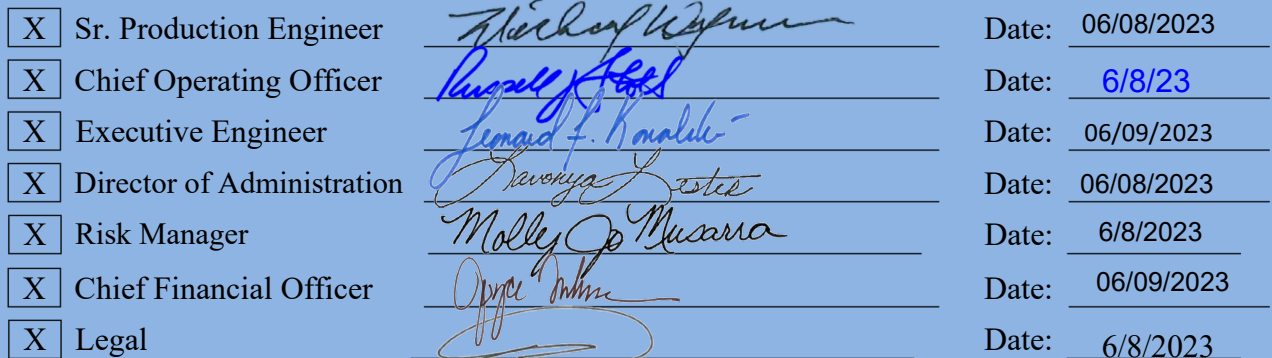 X Sr. Production Engineer Michael Date: 06/08/2023
X Chief Operating Officer Russell Date: 6/8/23
X Executive Engineer Leonard F. Date: 06/09/2023
X Director of Administration Lavonya Lester Date: 06/08/2023
X Risk Manager Molly Jo Musarra Date: 6/8/2023
X Chief Financial Officer Joyce Date: 06/09/2023
X Legal Date: 6/8/2023